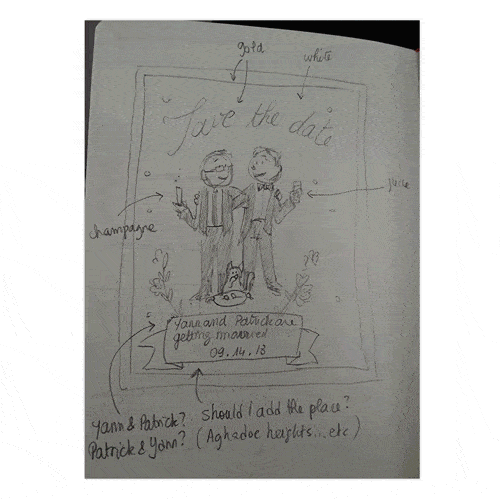 gold
white
Save the date
champagne
juice
Yann and Patrick are
getting married
09.14.18
Yann & Patrick?
Patrick & Yann?
Should I add the place?
(Aghadoe heights...etc)